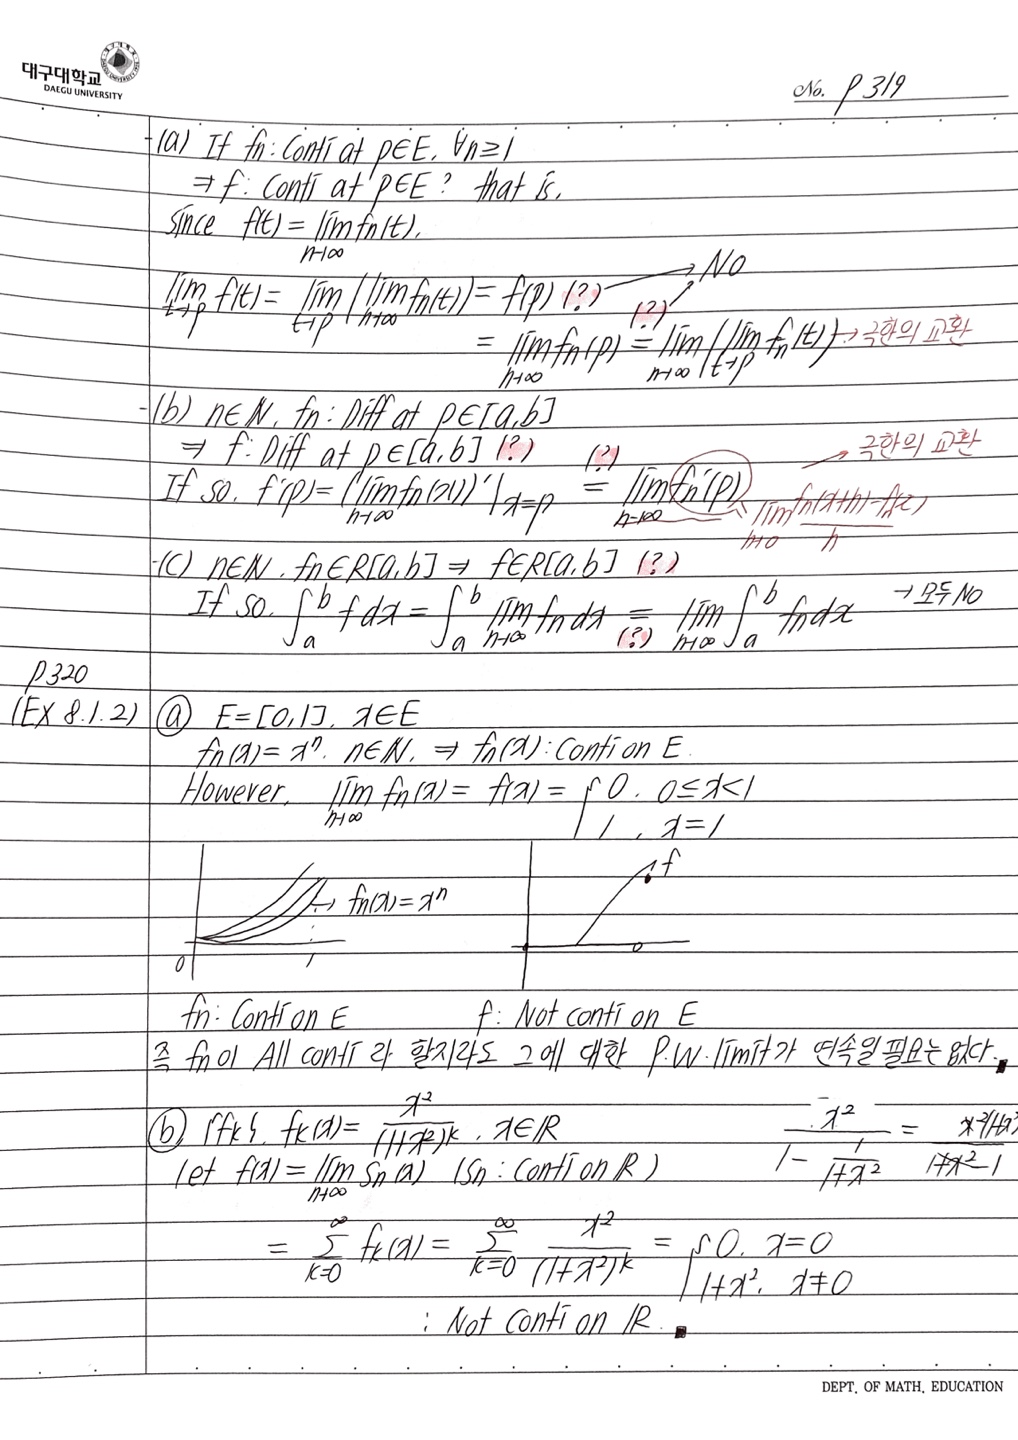 대구대학교
DAEGU UNIVERSITY
No. P 319
(a) If fn : Conti at p∈E. ∀n≥1
⇒ f : Conti at p∈E? that is,
since f(t) = lim_{n→∞} fn(t).
lim_{t→p} f(t) = lim_{t→p} (lim_{n→∞} fn(t)) = f(p) (?) → No
= lim_{n→∞} fn(p) (?) = lim_{n→∞} (lim_{t→p} fn(t)) → 극한의 교환
(b) n∈N. fn : Diff at p∈[a,b]
⇒ f : Diff at p∈[a,b] (?)
If so. f'(p) = (lim_{n→∞} fn(x))'|_{x=p} (?) = lim_{n→∞} fn'(p) → 극한의 교환
lim_{h→0}
(c) n∈N. fn∈R[a,b] ⇒ f∈R[a,b] (?)
If so. ∫_a^b f dx = ∫_a^b lim_{n→∞} fn dx = (?) lim_{n→∞} ∫_a^b fn dx → 모두 No
P320
(EX 8.1.2) ⓐ E=[0,1]. x∈E
fn(x) = x^n. n∈N. ⇒ fn(x) : Conti on E.
However. lim_{n→∞} fn(x) = f(x) = { 0. 0≤x<1
1, x=1
→ fn(x) = x^n
f
0 1
fn : Conti on E f : Not conti on E
즉 fn이 All conti 라 할지라도 그에 대한 P.W.limit가 연속일 필요는 없다.
ⓑ {fk}. fk(x) = x²/(1+x²)^k. x∈R
let f(x) = lim_{n→∞} Sn(x) (Sn : Conti on R)
x²/(1 - 1/(1+x²)) =
= Σ_{k=0}^∞ fk(x) = Σ_{k=0}^∞ x²/(1+x²)^k = { 0. x=0
1+x². x≠0
: Not conti on R.
DEPT. OF MATH. EDUCATION